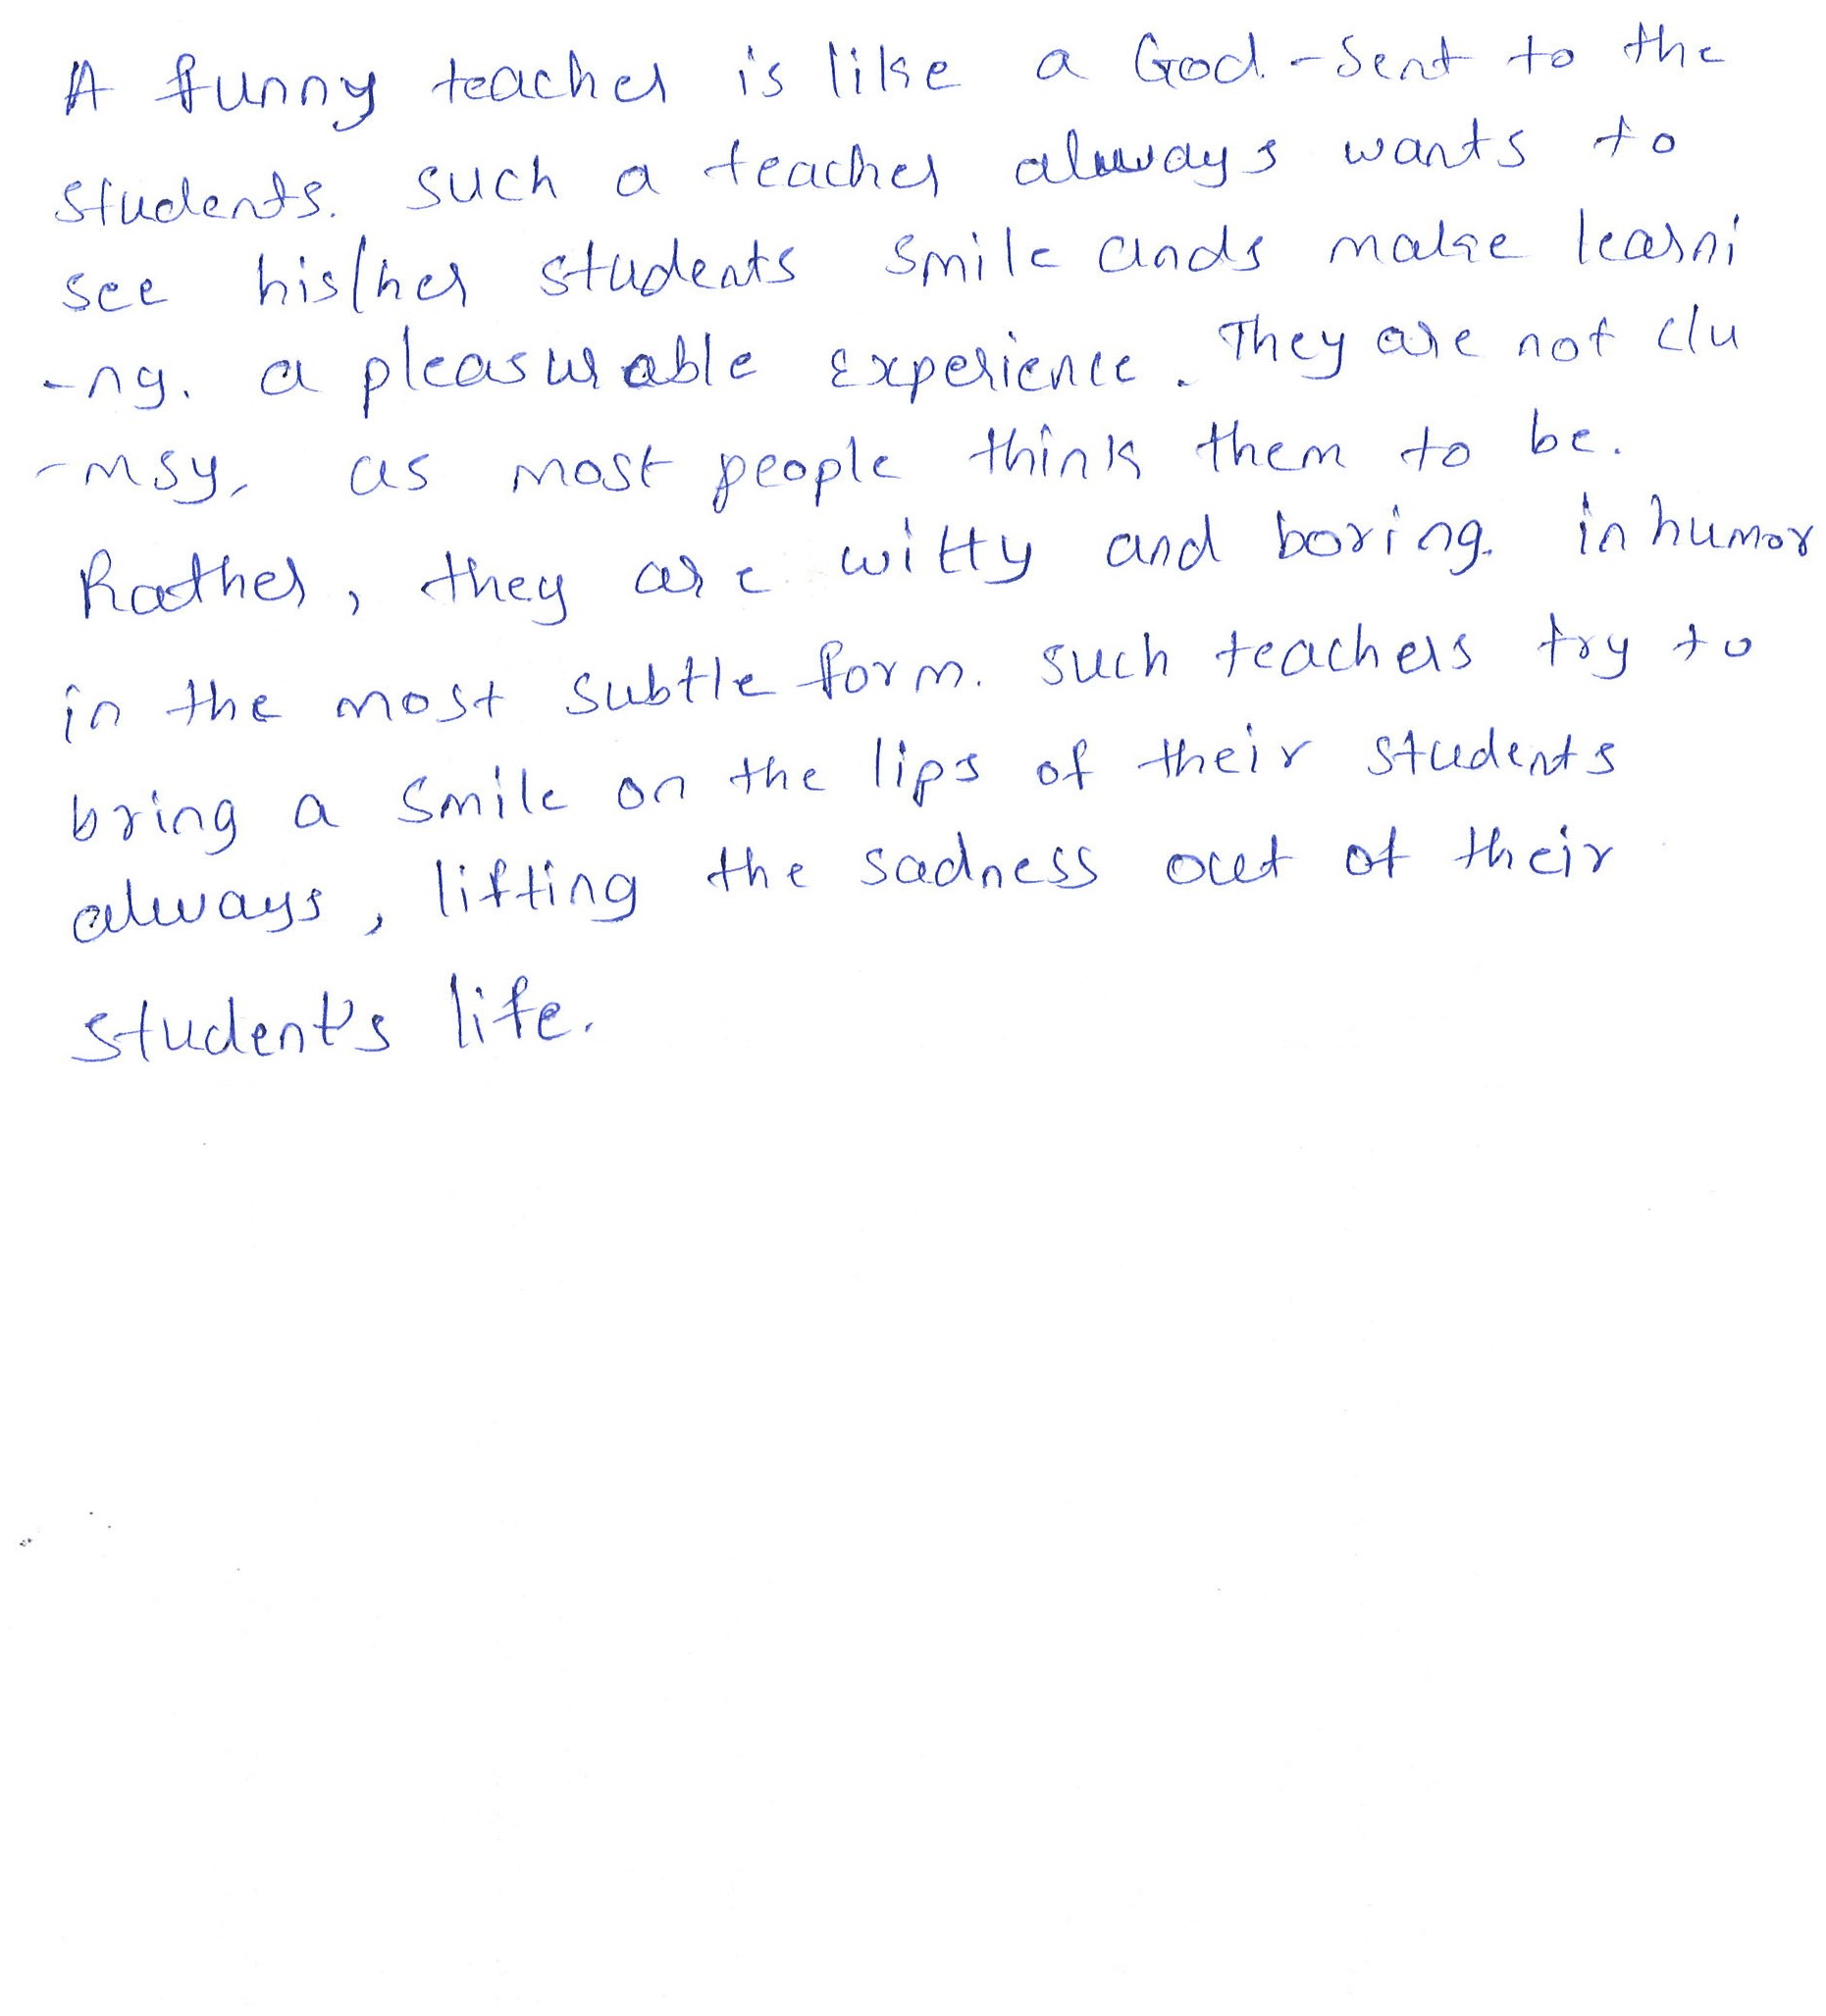 A funny teacher is like a God-Sent to the
students. such a teacher always wants to
see his/her students smile ands make learni
-ng. a pleasurable experience. They are not clu
-msy, as most people think them to be.
Rather, they are witty and boring. in humor
in the most subtle form. such teachers try to
bring a smile on the lips of their students
always, lifting the sadness out of their
student's life.